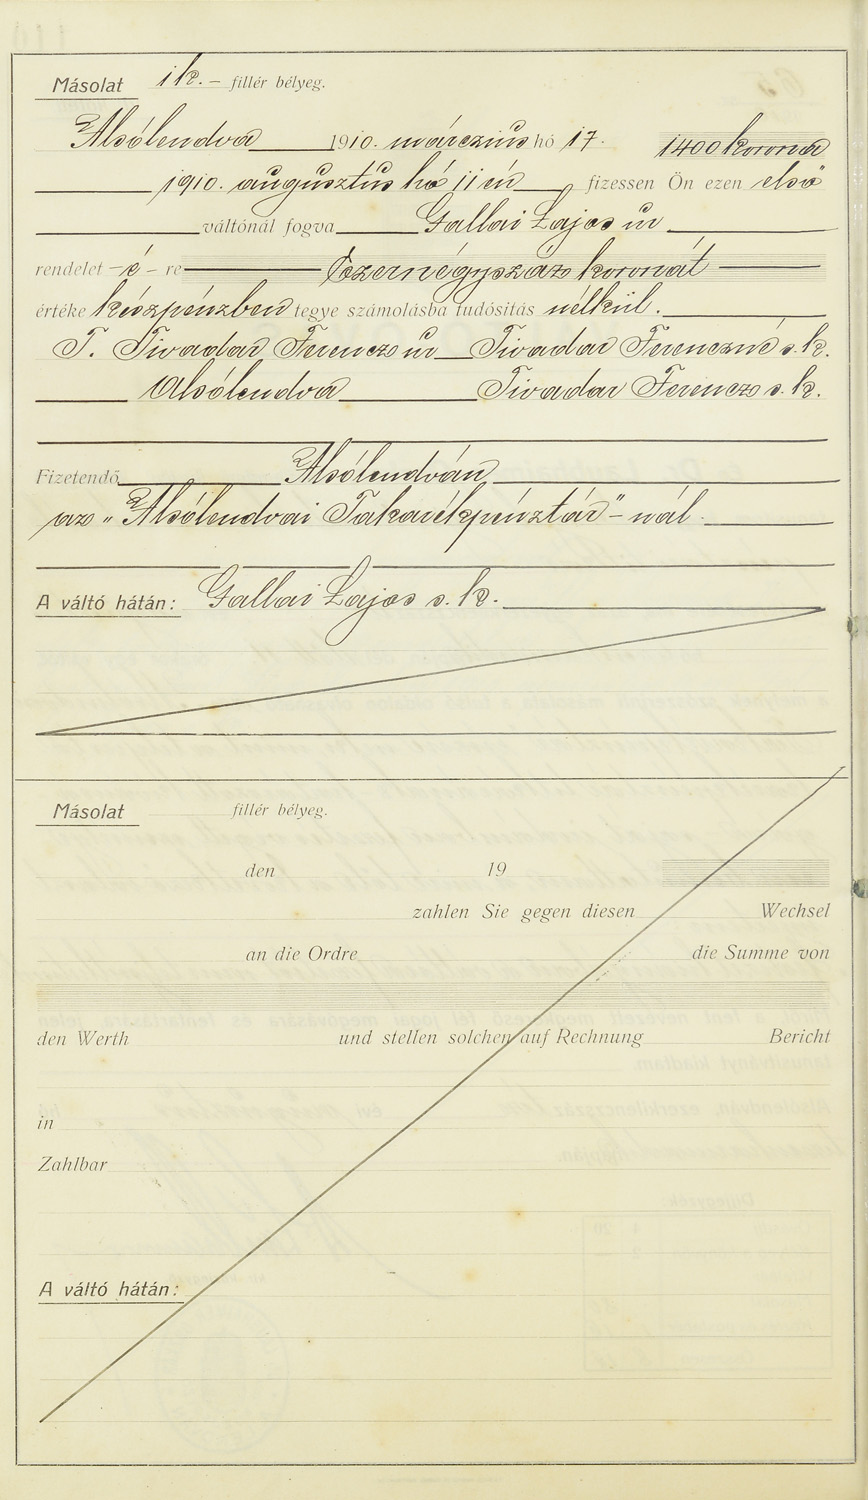 Másolat 1 k. – fillér bélyeg.
Alsólendva 1910. márczius hó 17. 1400 korona
1910. augusztus hó 11 én fizessen Ön ezen első"
váltónál fogva Gallai Lajos úr
rendelet – é – re Ezernégyszáz koronát
értéke készpénzben tegye számolásba tudósítás nélkül.
T. Tivadar Ferencz úr Tivadar Ferenczné s. k.
Alsólendva Tivadar Ferencz s. k.
Fizetendő Alsólendván
az „Alsólendvai Takarékpénztár" – nál.
A váltó hátán: Gallai Lajos s. k.
Másolat fillér bélyeg.
den 19
zahlen Sie gegen diesen Wechsel
an die Ordre die Summe von
den Werth und stellen solchen auf Rechnung Bericht
in
Zahlbar
A váltó hátán: